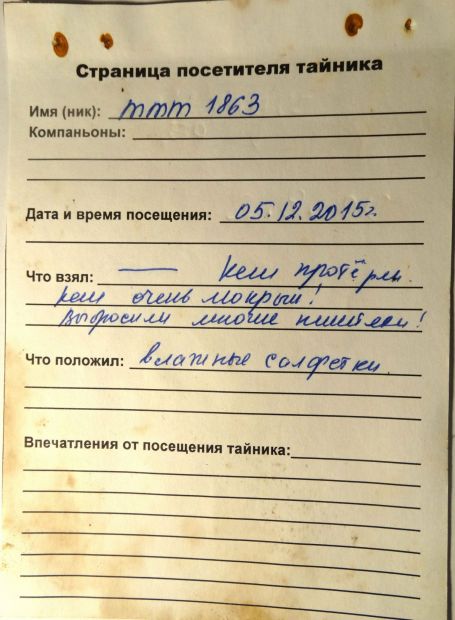 Страница посетителя тайника
Имя (ник): ттт 1863
Компаньоны:
Дата и время посещения: 05.12.2015г.
Что взял: — Кеш протёрли.
кеш очень мокрый!
Выбросили многие
Что положил: влажные салфетки.
Впечатления от посещения тайника: